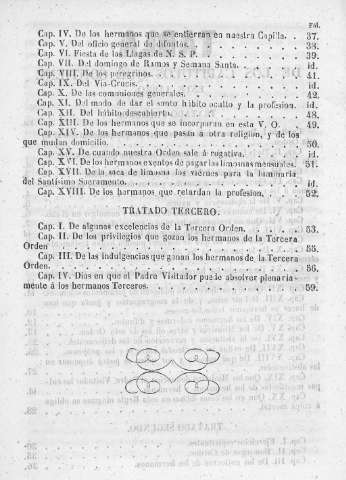 Fól.
Cap. IV. De los hermanos que se entierran en nuestra Capilla. . 37.
Cap. V. Del oficio general de difuntos. . . . . . . . . . . 38.
Cap. VI. Fiesta de las Llagas de N. S. P. . . . . . . . . . 39.
Cap. VII. Del domingo de Ramos y Semana Santa. . . . . . . id.
Cap. VIII. De los peregrinos. . . . . . . . . . . . . . . 41.
Cap. IX. Del Via-Crucis. . . . . . . . . . . . . . . . . id.
Cap. X. De las comuniones generales. . . . . . . . . . . . 42.
Cap. XI. Del modo de dar el santo hábito oculto y la profesion. id.
Cap. XII. Del hábito descubierto. . . . . . . . . . . . . 48.
Cap. XIII. De los hermanos que se incorporan en esta V. O. . 49.
Cap. XIV. De los hermanos que pasan á otra religion, y de los
que mudan domicilio. . . . . . . . . . . . . . . . . . . 50.
Cap. XV. De cuando nuestra Orden sale á rogativa. . . . . . id.
Cap. XVI. De los hermanos exentos de pagar las limosnas mensuales. 51.
Cap. XVII. De la saca de limosna los viernes para la luminaria
del Santísimo Sacramento. . . . . . . . . . . . . . . . . id.
Cap. XVIII. De los hermanos que retardan la profesion. . . . 52.
TRATADO TERCERO.
Cap. I. De algunas excelencias de la Tercera Orden. . . . . 53.
Cap. II. De los privilegios que gozan los hermanos de la Tercera
Orden . . . . . . . . . . . . . . . . . . . . . . . . . 55.
Cap. III. De las indulgencias que ganan los hermanos de la Tercera
Orden. . . . . . . . . . . . . . . . . . . . . . . . . 56.
Cap. IV. Dias en que el Padre Visitador puede absolver plenaria
mente á los hermanos Terceros. . . . . . . . . . . . . . 59.